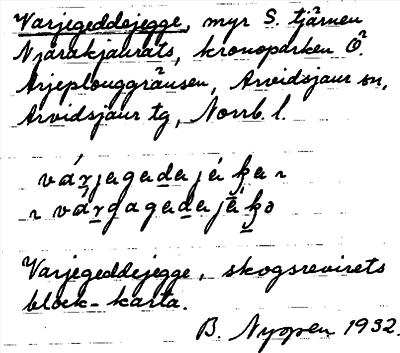 Varjegeddejegge, myr S. tjärnen
Njarakjaurats, kronoparken Ö.
Arjeplouggränsen, Arvidsjaur sn,
Arvidsjaur tg, Norrb. l.
Varjegeddejegge, skogsrevirets
block-karta.
B. Nyman 1932.